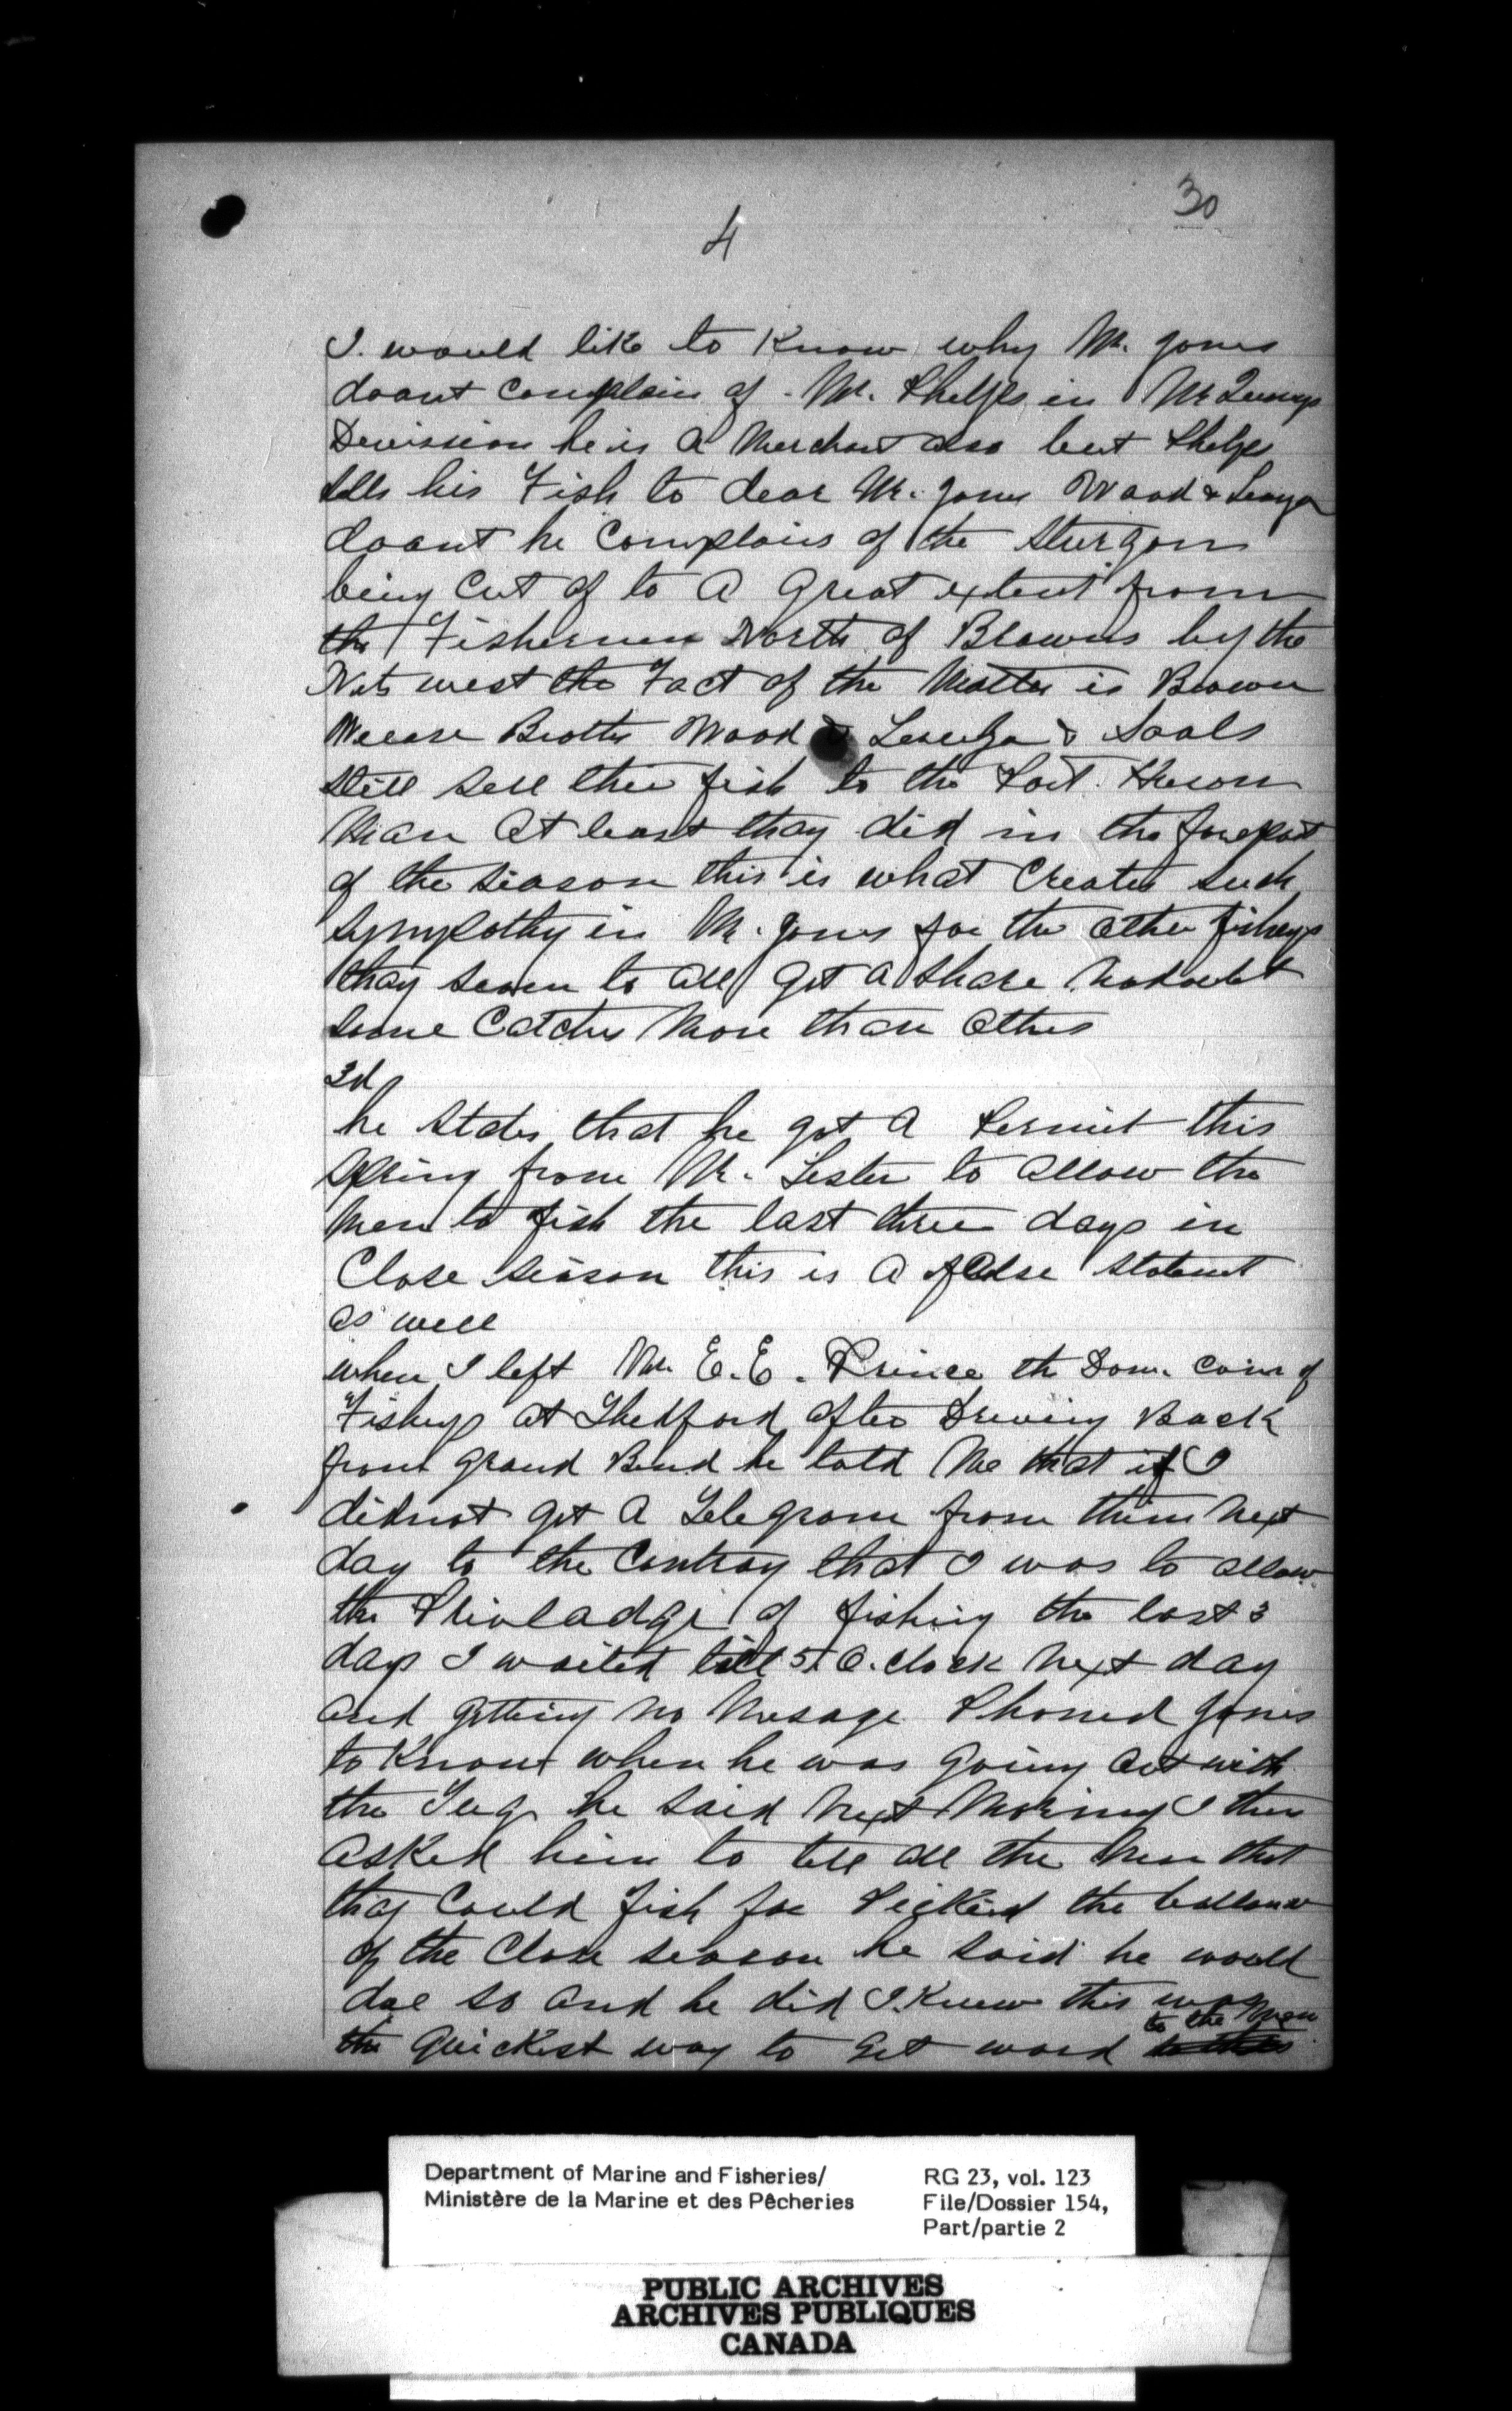 30
4
I. would like to Know why Mr. Jones
doant complain of Mr. Phelps in Mc
Devission he is A Merchant also but Phelps
sells his Fish to dear Mr. Jones Wood &
doant he Complain of the Sturgon
being Cut of to A Great extent from
the Fishermen North of Browns by the
Nets west the Fact of the Matter is Brown
Brothr Wood & & Saols
still sell their fish to the Port. Huron
Man At least thay did in the forepart
of the Season this is what Creates such
Sympothy in Mr. Jones for the other fisherys
thay seem to all get A Share Nodoubt
some Catches More than others
3d
he States that he got A Permit this
Spring from Mr. Lester to Allow the
Men to fish the last three days in
Close Season this is A false Statement
as well
when I left Mr. E. E. Prince the Dom. Com of
Fisherys at Thedford after Driving Back
from Grand Bend he told Me that if I
did not get A Telegram from them Next
day to the Contray that I was to allow
the Privladge of fishing the last 3
days I waited till 5 O. clock Next day
and getting No Mesage Phoned Jones
to Know when he was going Out with
the Tug he said Next Morning I then
Asked him to tell all the Men that
thay Could fish for Pickerel the ballance
of the Close season he said he would
doe so and he did I. Knew this was
the Quickest way to Get word to the Men
Department of Marine and Fisheries/
Ministère de la Marine et des Pêcheries
RG 23, vol. 123
File/Dossier 154,
Part/partie 2
PUBLIC ARCHIVES
ARCHIVES PUBLIQUES
CANADA